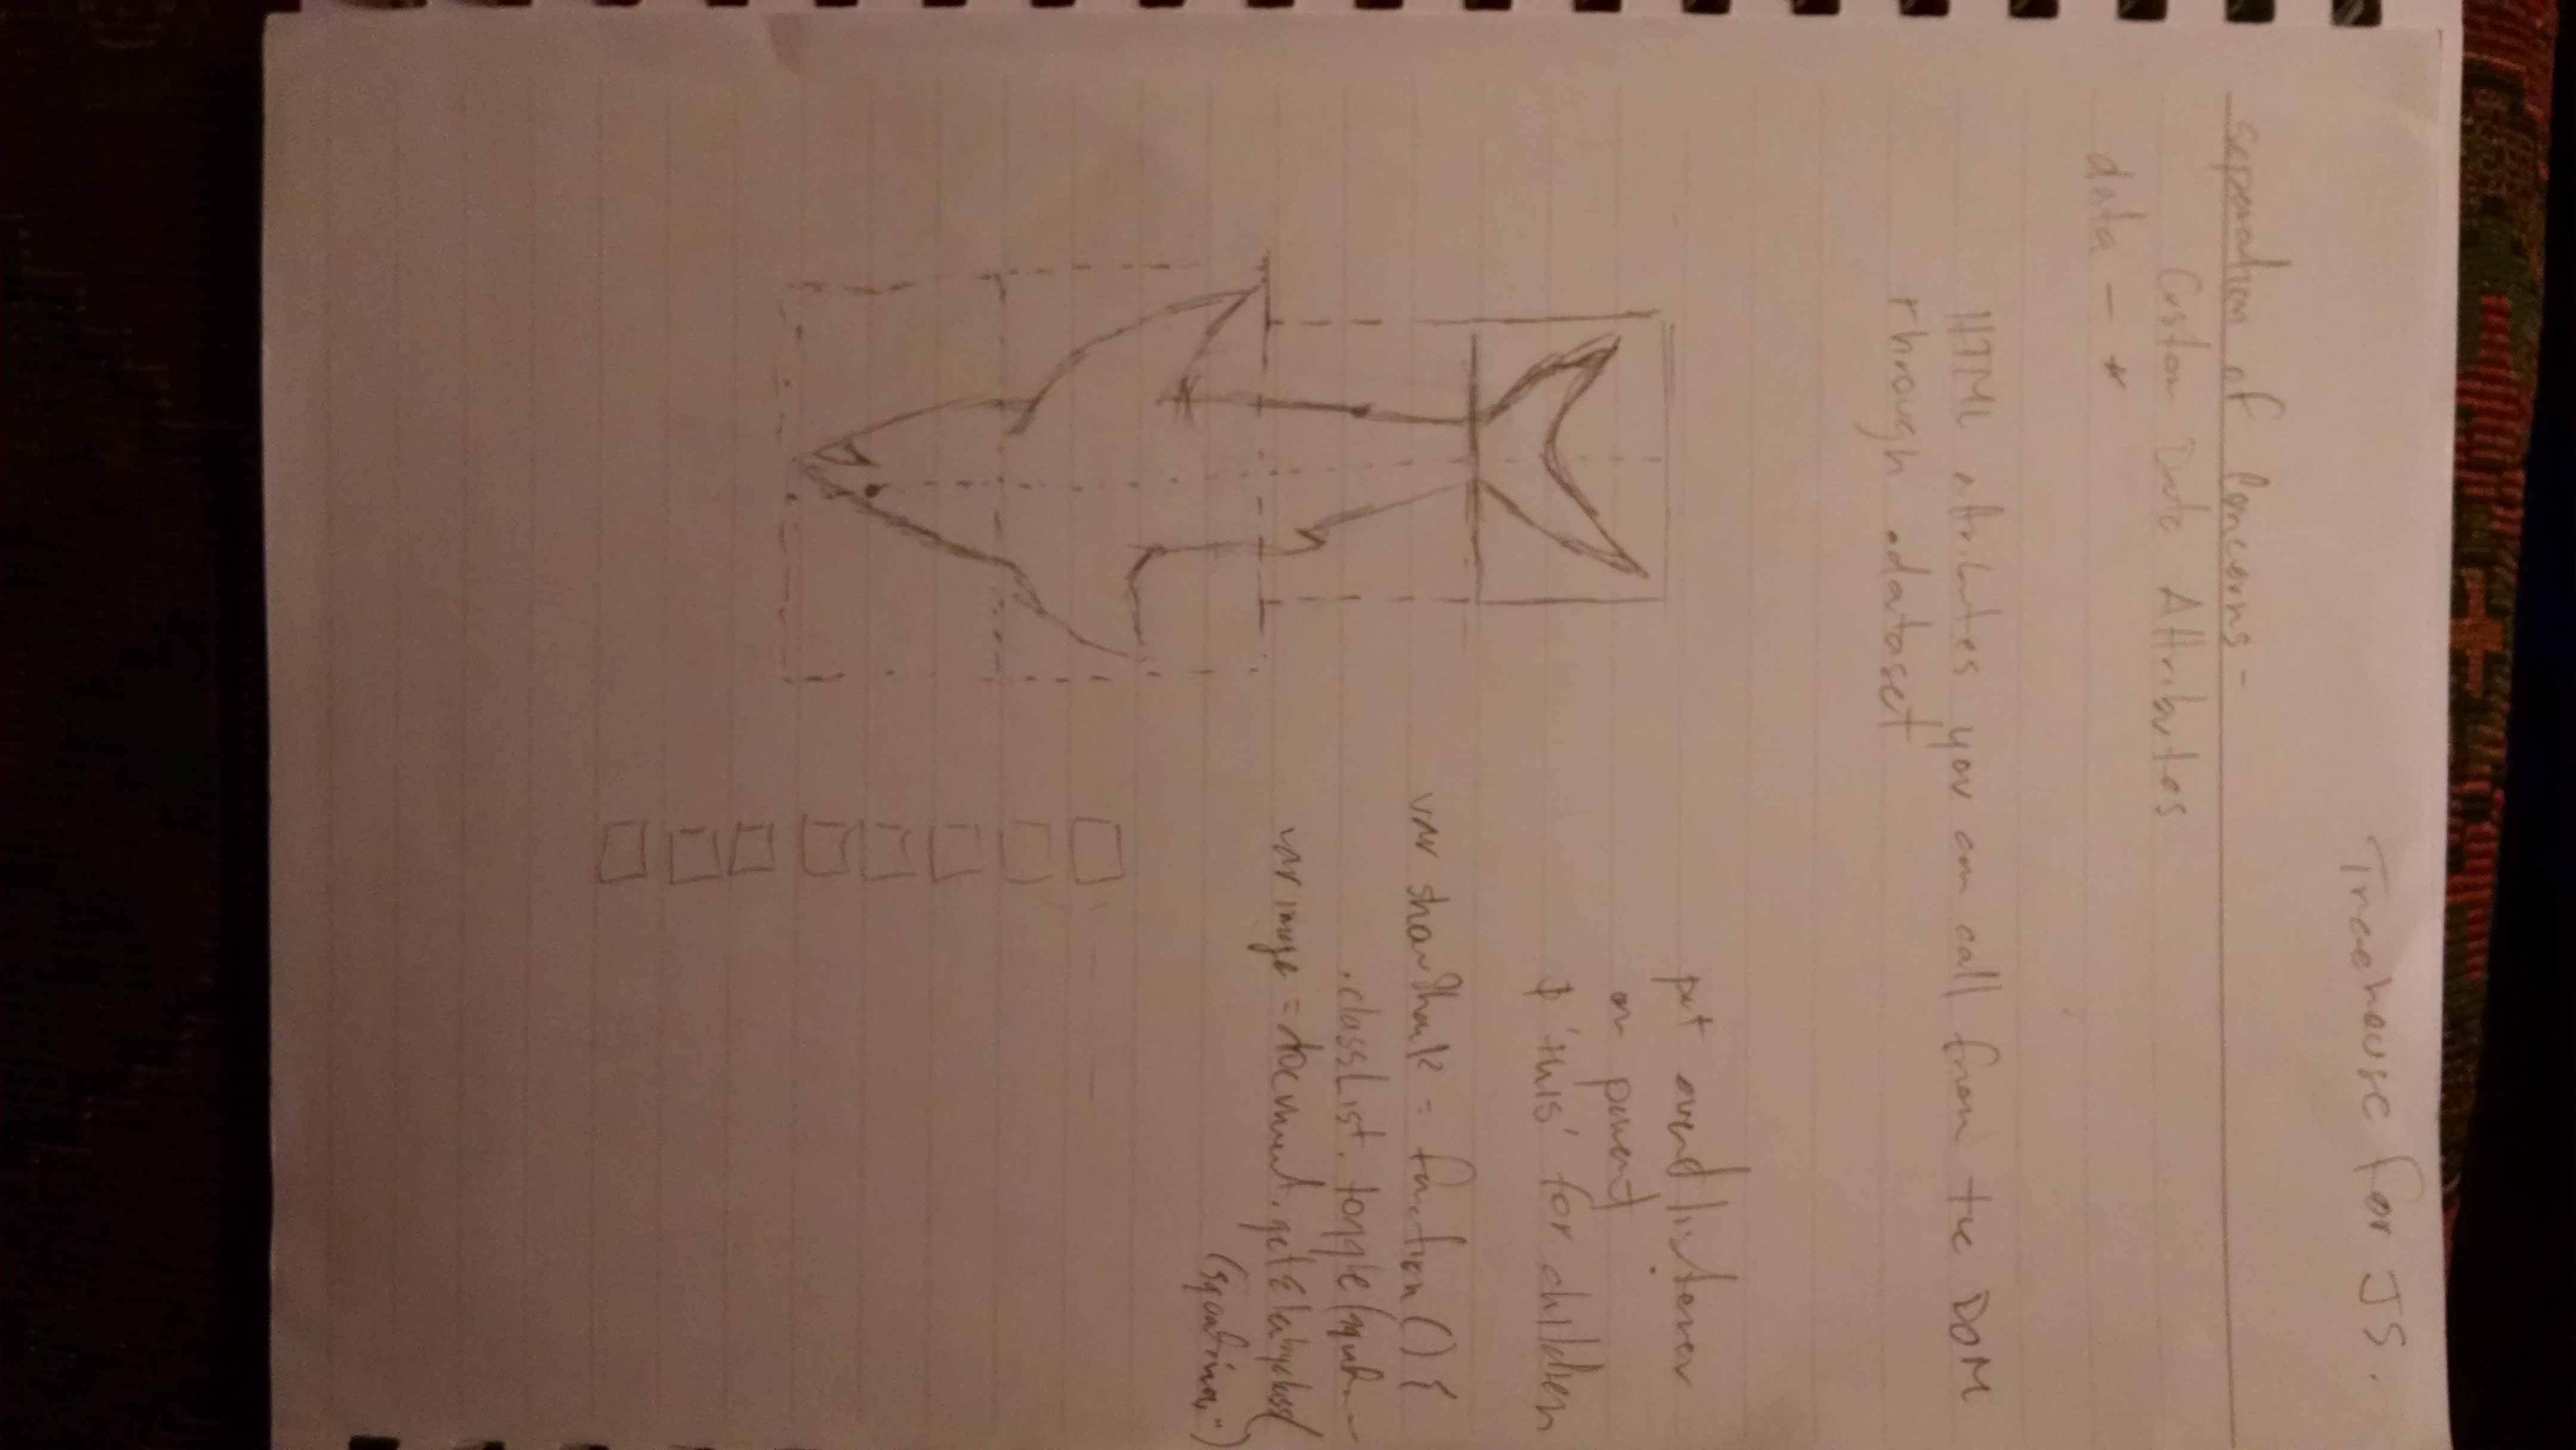 Treehouse for JS.
separation of Concerns -
Custom Data Attributes
data - *
HTML attributes you can call from the DOM
through .dataset
put event listener
on parent
$ 'this' for children
var showShark = function () {
.classList.toggle(
var image = document.getElebyclass(